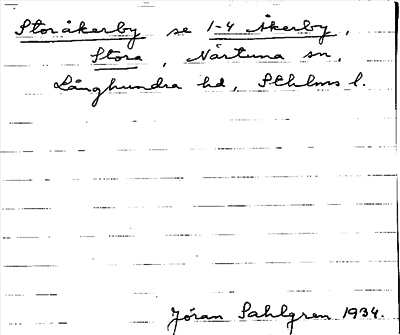 Storåkerby se 1-4 Åkerby,
Stora, Närtuna sn,
Långhundra hd, Sthlms l.
Jöran Sahlgren 1934.